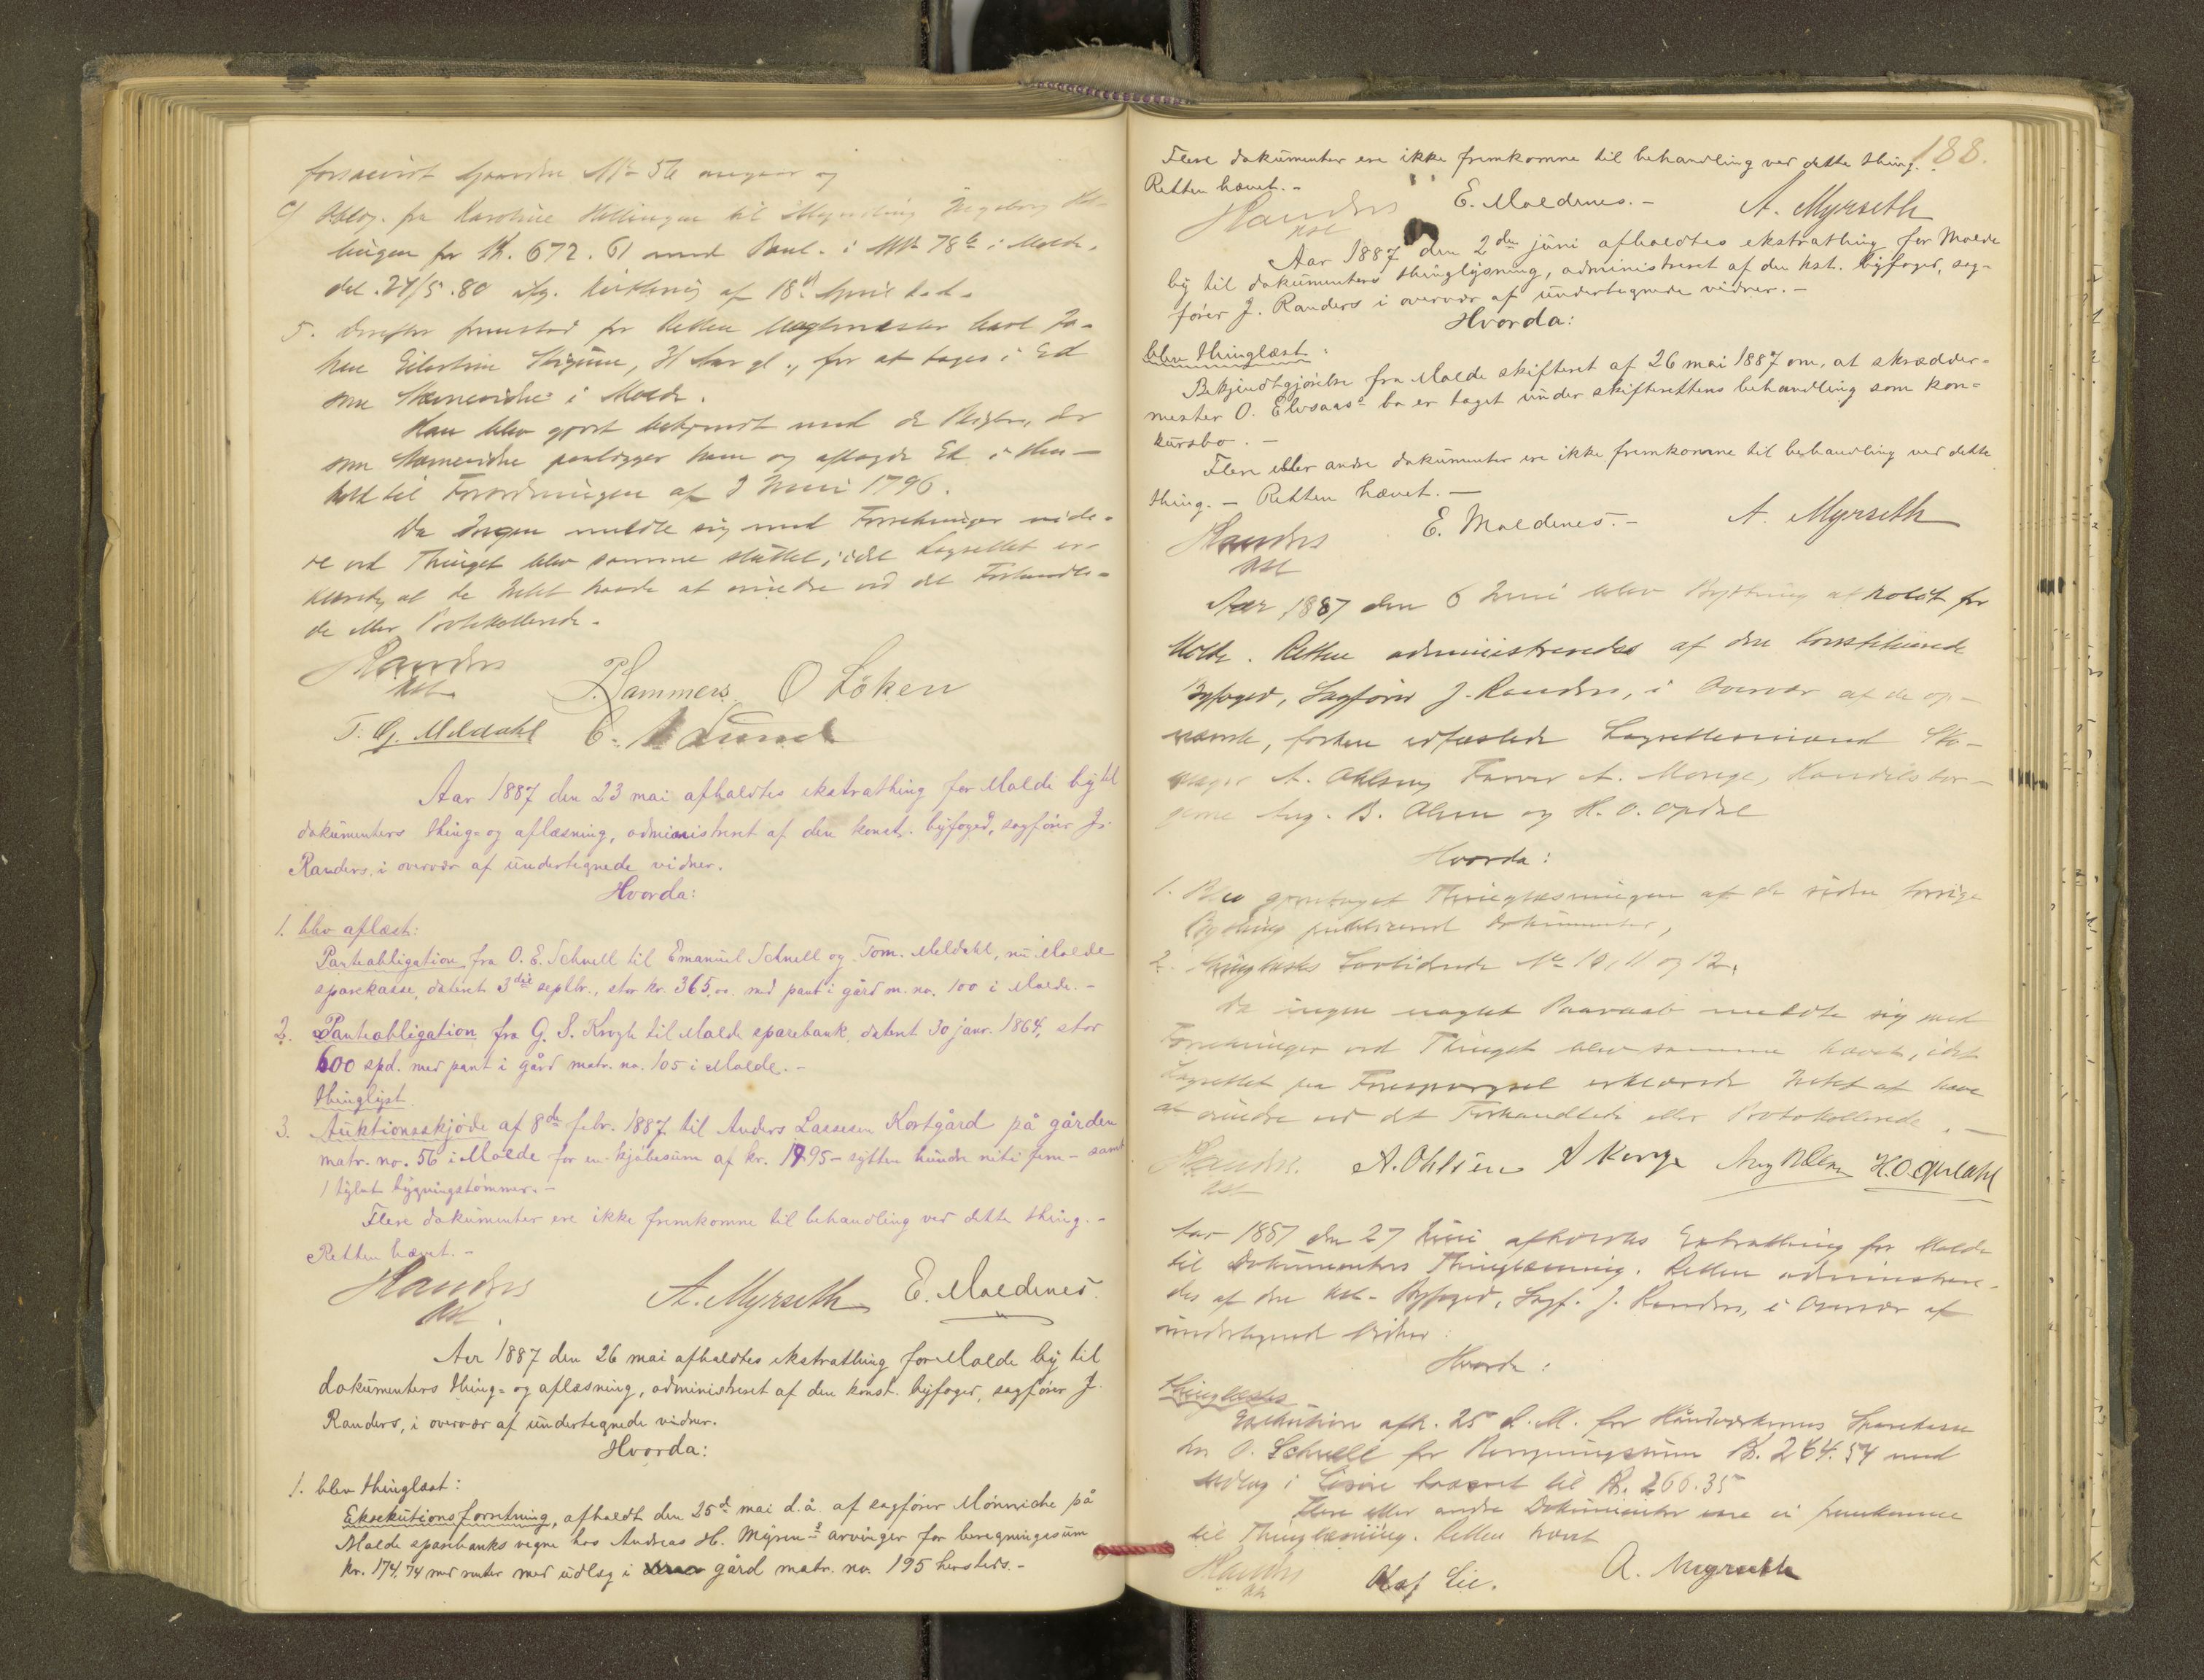 forsaavidt Gaarden No 56 angaar og
c) Oblg. fra Karoline Hellingen til Myndling Ingeborg Hel-
lingen for Kr. 672.61 med Pant. i No 78b i Molde,
dat. 24/5.80 iflg. Kvittering af 18d April d.A.
5. Derefter fremstod for Retten Vagtmester Karl Jo-
han 31 Aar gl., for at tages i Ed
som Stævnevidne i Molde.
Han blev gjort bekjendt med de Pligter, der
som Stævnevidne paaligger ham og aflagde Ed i Hen-
hold til Forordningen af 3 Juni 1796.
Da Ingen meldte sig med Forretninger vide-
re ved Thinget blev samme sluttet, idet Lagrettet er-
klærede, at de Intet havde at erindre ved det Forhandle-
de eller Protokollerede.
Randers
kst.
P. Lammers O Löken
T. G. Meldahl C. Lund
Aar 1887 den 23 mai afholdtes ekstrathing for Molde by til
dokumenters thing- og aflæsning, administreret af den konst. byfoged, sagfører J.
Randers, i overvær af undertegnede vidner.
Hvorda:
1. blev aflæst:
Panteobligation fra O. E. Schnell til Emanuel Schnell og Tom. Meldahl, nu Molde
sparekasse, dateret 3die septbr., stor kr. 365,00 med pant i gård m. no. 100 i Molde. -
2. Panteobligation fra G. S. Krogh til Molde sparebank, datert 30 janr. 1864, stor
600 spd. med pant i gård matr. no. 105 i Molde. -
thinglyst.
3. Auktionsskjøde af 8de febr. 1887 til Anders Lassesen Kortgård på gården
matr. no. 56 i Molde for en kjøbesum af kr. 1795 - sytten hundre niti fem - samt
1 tylvt bygningstømmer. -
Flere dokumenter ere ikke fremkomne til behandling ved dette thing. -
Retten hævet. -
Randers
kst.
A. Myrseth E. Moldenes.
Aar 1887 den 26 mai afholdtes ekstrathing for Molde by til
dokumenters thing- og aflæsning, administreret af den konst. byfoged, sagfører J.
Randers, i overvær af undertegnede vidner.
Hvorda:
1. blev thinglæst:
Eksekutionsforretning, afholdt den 25d mai d.å. af sagfører Mönniche på
Molde sparebanks vegne hos Andreas H. Myrens arvinger for beregningssum
kr. 174.74 med renter med udlæg i gård matr. no. 195 hersteds. -
188.
Flere dokumenter ere ikke fremkomne til behandling ved dette thing.
Retten hævet. -
Randers
kst
E. Moldenes. - A. Myrseth
Aar 1887 den 2den juni afholdtes ekstrathing for Molde
by til dokumenters thinglysning, administreret af den kst. byfoged, sag-
fører J. Randers i overvær af undertegnede vidner. -
Hvorda:
blev thinglæst:
Bekjendtgjørelse fra Molde skifteret af 26 mai 1887 om, at skrædder-
mester O. Elvsaas's bo er taget under skifterettens behandling som kon-
kursbo. -
Flere eller andre dokumenter ere ikke fremkomne til behandling ved dette
thing. - Retten hævet. -
Randers
kst
E. Moldenes. - A. Myrseth
Aar 1887 den 6 Juni blev Bything afholdt for
Molde. Retten administreredes af den konstituerede
Byfoged, Sagfører J. Randers, i Overvær af de op-
nævnte, forhen edfæstede Lagrettesmænd Sko-
mager A. Ohlsen, Farver A. Monge, Handelsbor-
gerne Aug. B. Olsen og H. O. Opdal
Hvorda:
1. Blev foretaget Thinglæsningen af de siden forrige
Bything publicerede Dokumenter,
2. Thinglæstes Lovtidende No 10, 11 og 12.
Da ingen uagtet Paaraab meldte sig med
Forretninger ved Thinget blev samme hævet, idet
Lagrettet paa Forespørgsel erklærede Intet at have
at erindre ved det Forhandlede eller Protokollerede. -
Randers.
kst
A. Ohlsen A Monge Aug B Olsen H. O. Opdahl
Aar 1887 den 27 Juni afholdtes Extrathing for Molde
til Dokumenters Thinglæsning. Retten administrere-
des af den kst. Byfoged, Sagf. J. Randers, i Overvær af
undertegnede Vidner:
Hvorda:
thinglæstes
Exekution afh. 25 d.M. for Håndværkernes Sparekasse
hos O. Schnell for Beregningssum Kr. 264.54 med
Udlæg i Løsøre taxeret til Kr. 266.35
Flere eller andre Dokumenter vare ei fremkomne
til Thinglæsning. Retten hævet
Randers
kst
Olaf Lie. A. Myrseth